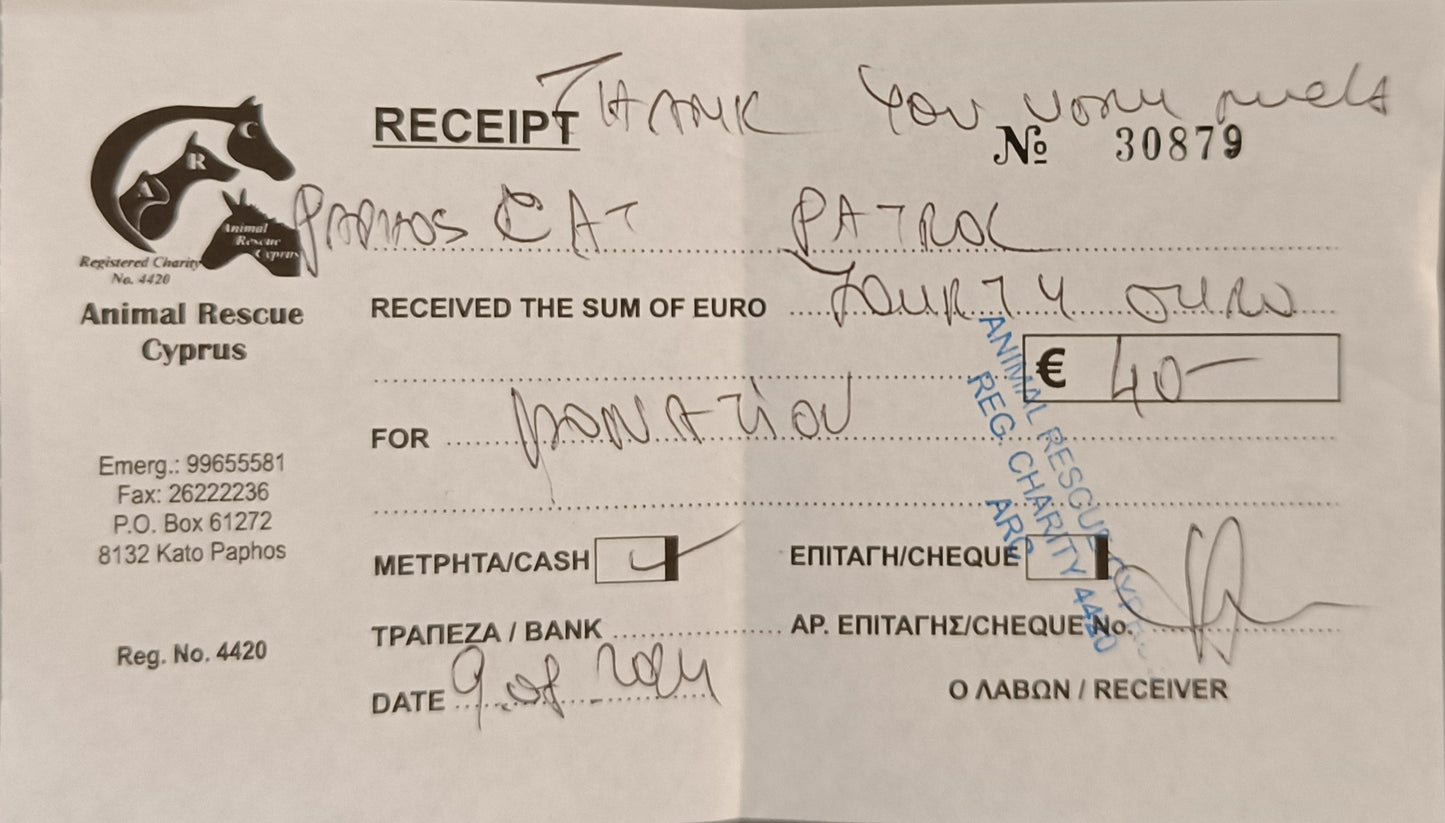 RECEIPT THANK You very much
№ 30879
A R C
Animal
Rescue
Cyprus
Registered Charity
No. 4420
Animal Rescue
Cyprus
PAPHOS CAT PATROL
RECEIVED THE SUM OF EURO FOURTY euro
€ 40-
FOR DONATION
Emerg.: 99655581
Fax: 26222236
P.O. Box 61272
8132 Kato Paphos
ΜΕΤΡΗΤΑ/CASH
ΕΠΙΤΑΓΗ/CHEQUE
ΤΡΑΠΕΖΑ / BANK
ΑΡ. ΕΠΙΤΑΓΗΣ/CHEQUE No.
Reg. No. 4420
DATE 9. 2024
Ο ΛΑΒΩΝ / RECEIVER
ANIMAL RESCUE CYPRUS
REG. CHARITY 4420
ARC